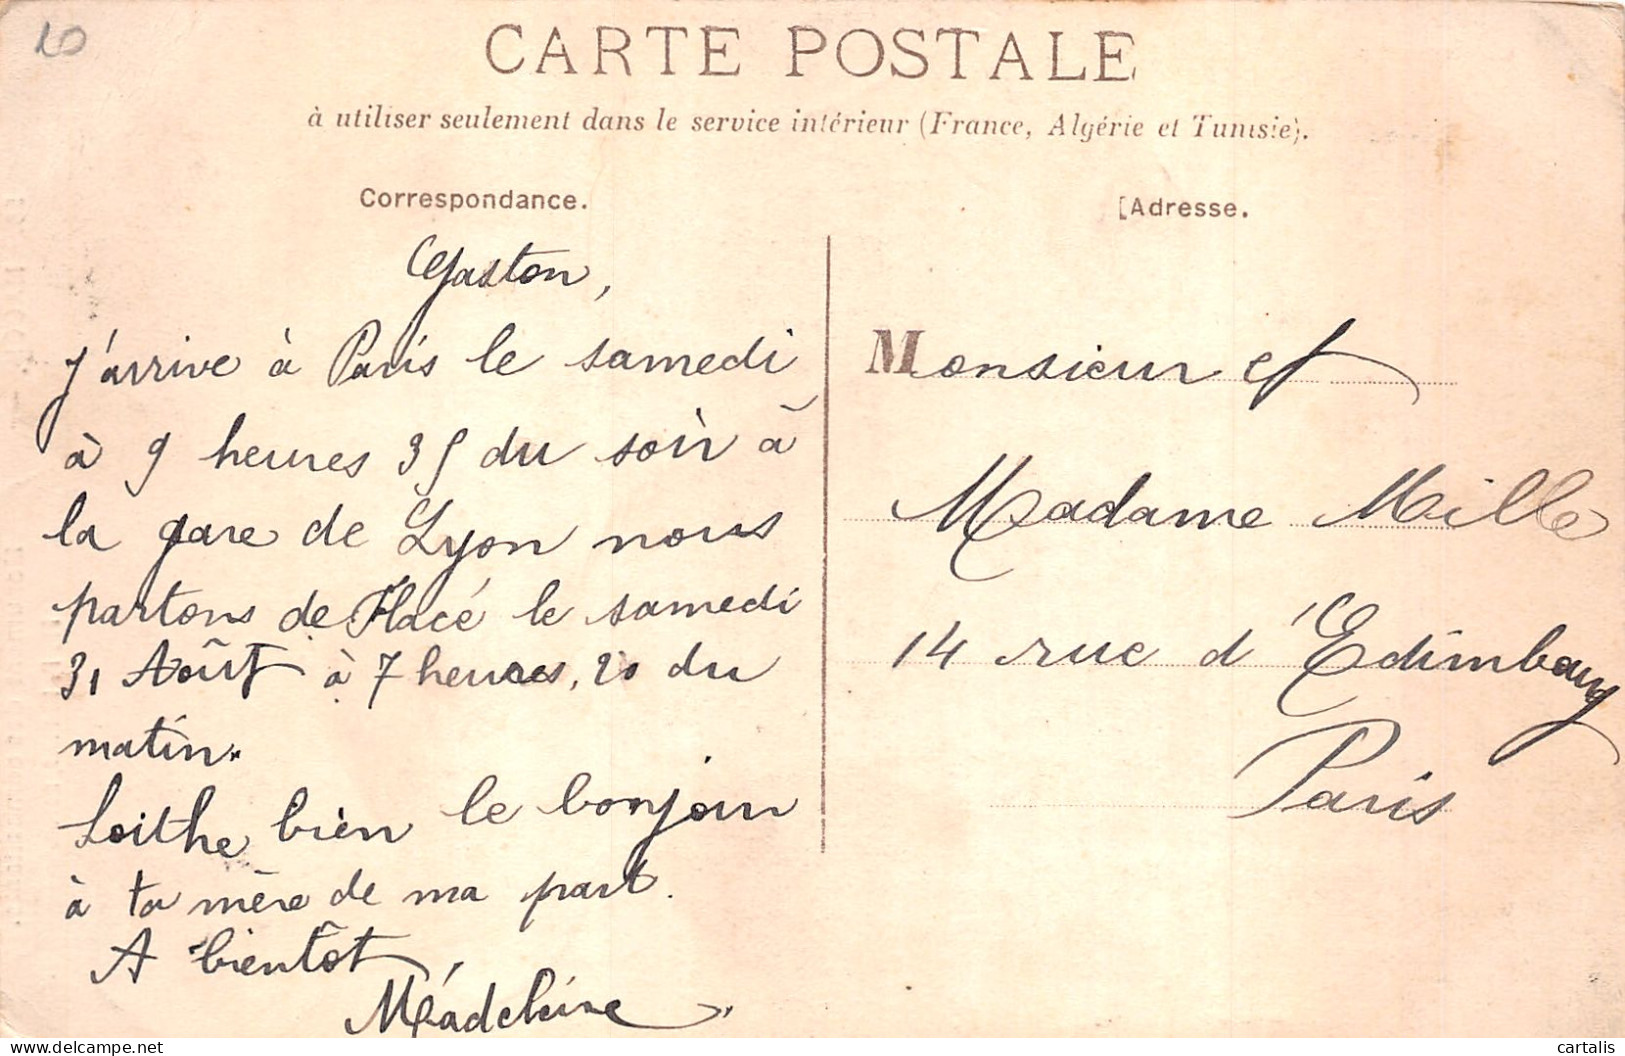 20
CARTE POSTALE
à utiliser seulement dans le service intérieur (France, Algérie et Tunisie).
Correspondance.
Gaston,
J'arrive à Paris le samedi
à 9 heures 35 du soir à
la gare de Lyon nous
partons de Flacé le samedi
31 Août à 7 heures, 20 du
matin.
bien le bonjour
à ta mère de ma part.
A bientôt,
Madeleine
Adresse.
Monsieur et
Madame Mille
14 rue d'Edimbourg
Paris
cartalis
delcampe.net